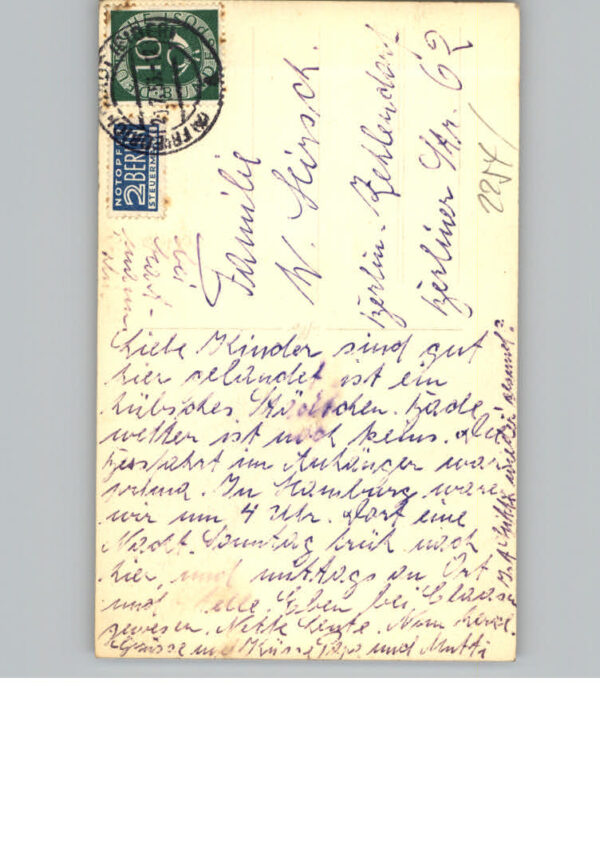 10
DEUTSCHE BUNDESPOST
NOTOPFER
2 BERLIN
STEUERMARKE
Familie
W. Hirsch.
Berlin-Zehlendorf
Berliner Str. 62
Bei
Liebe Kinder sind gut
hier gelandet ist ein
hübsches Städtchen. Bade
wetter ist noch keins. Die
Busfahrt im Anhänger war
prima. In Hamburg waren
wir um 4 Uhr. Dort eine
Nacht. Sonntag früh nach
hier, und mittags an Ort
und Stelle. Eben bei
gewesen. Nette Leute. Nun herzl.
Grüsse und Küsse Papa und Mutti
Ist wieder gesund?